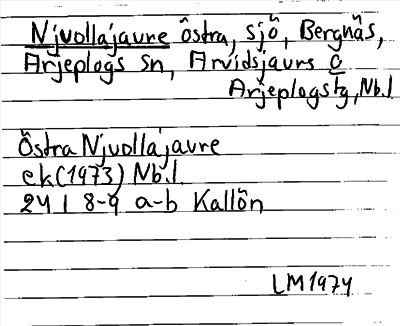 Njvollájaure östra, sjö, Bergnäs,
Arjeplogs sn, Arvidsjaurs o
Arjeplogs tg, Nb.l
Östra Njuollájaure
ek (1973) Nb.l.
24 I 8-9 a-b Kallön
LM 1974